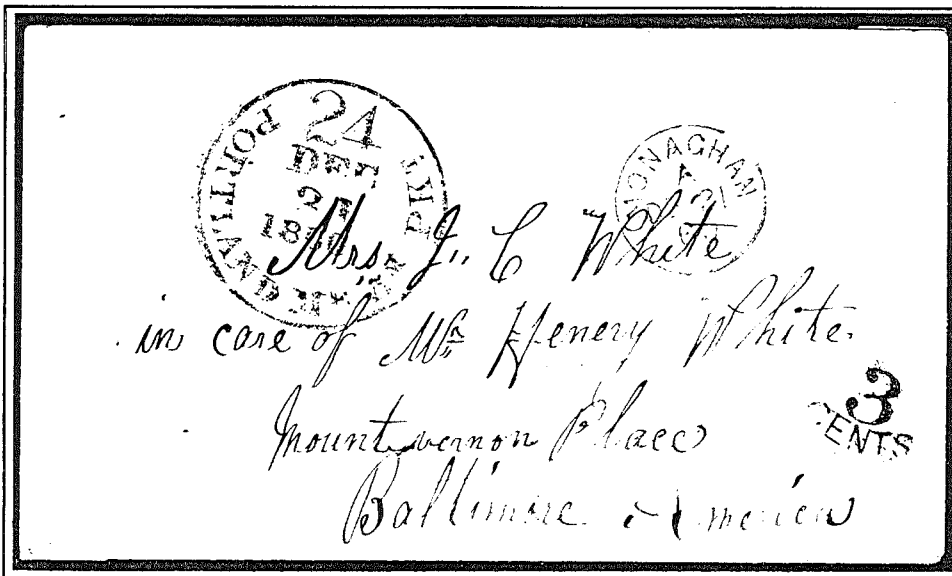 PORTLAND
24
DEC
PKT
MONAGHAN
Mrs. J,, C White
in care of Mr Henery White.
3
CENTS
Mount vernon Place
Baltimore America